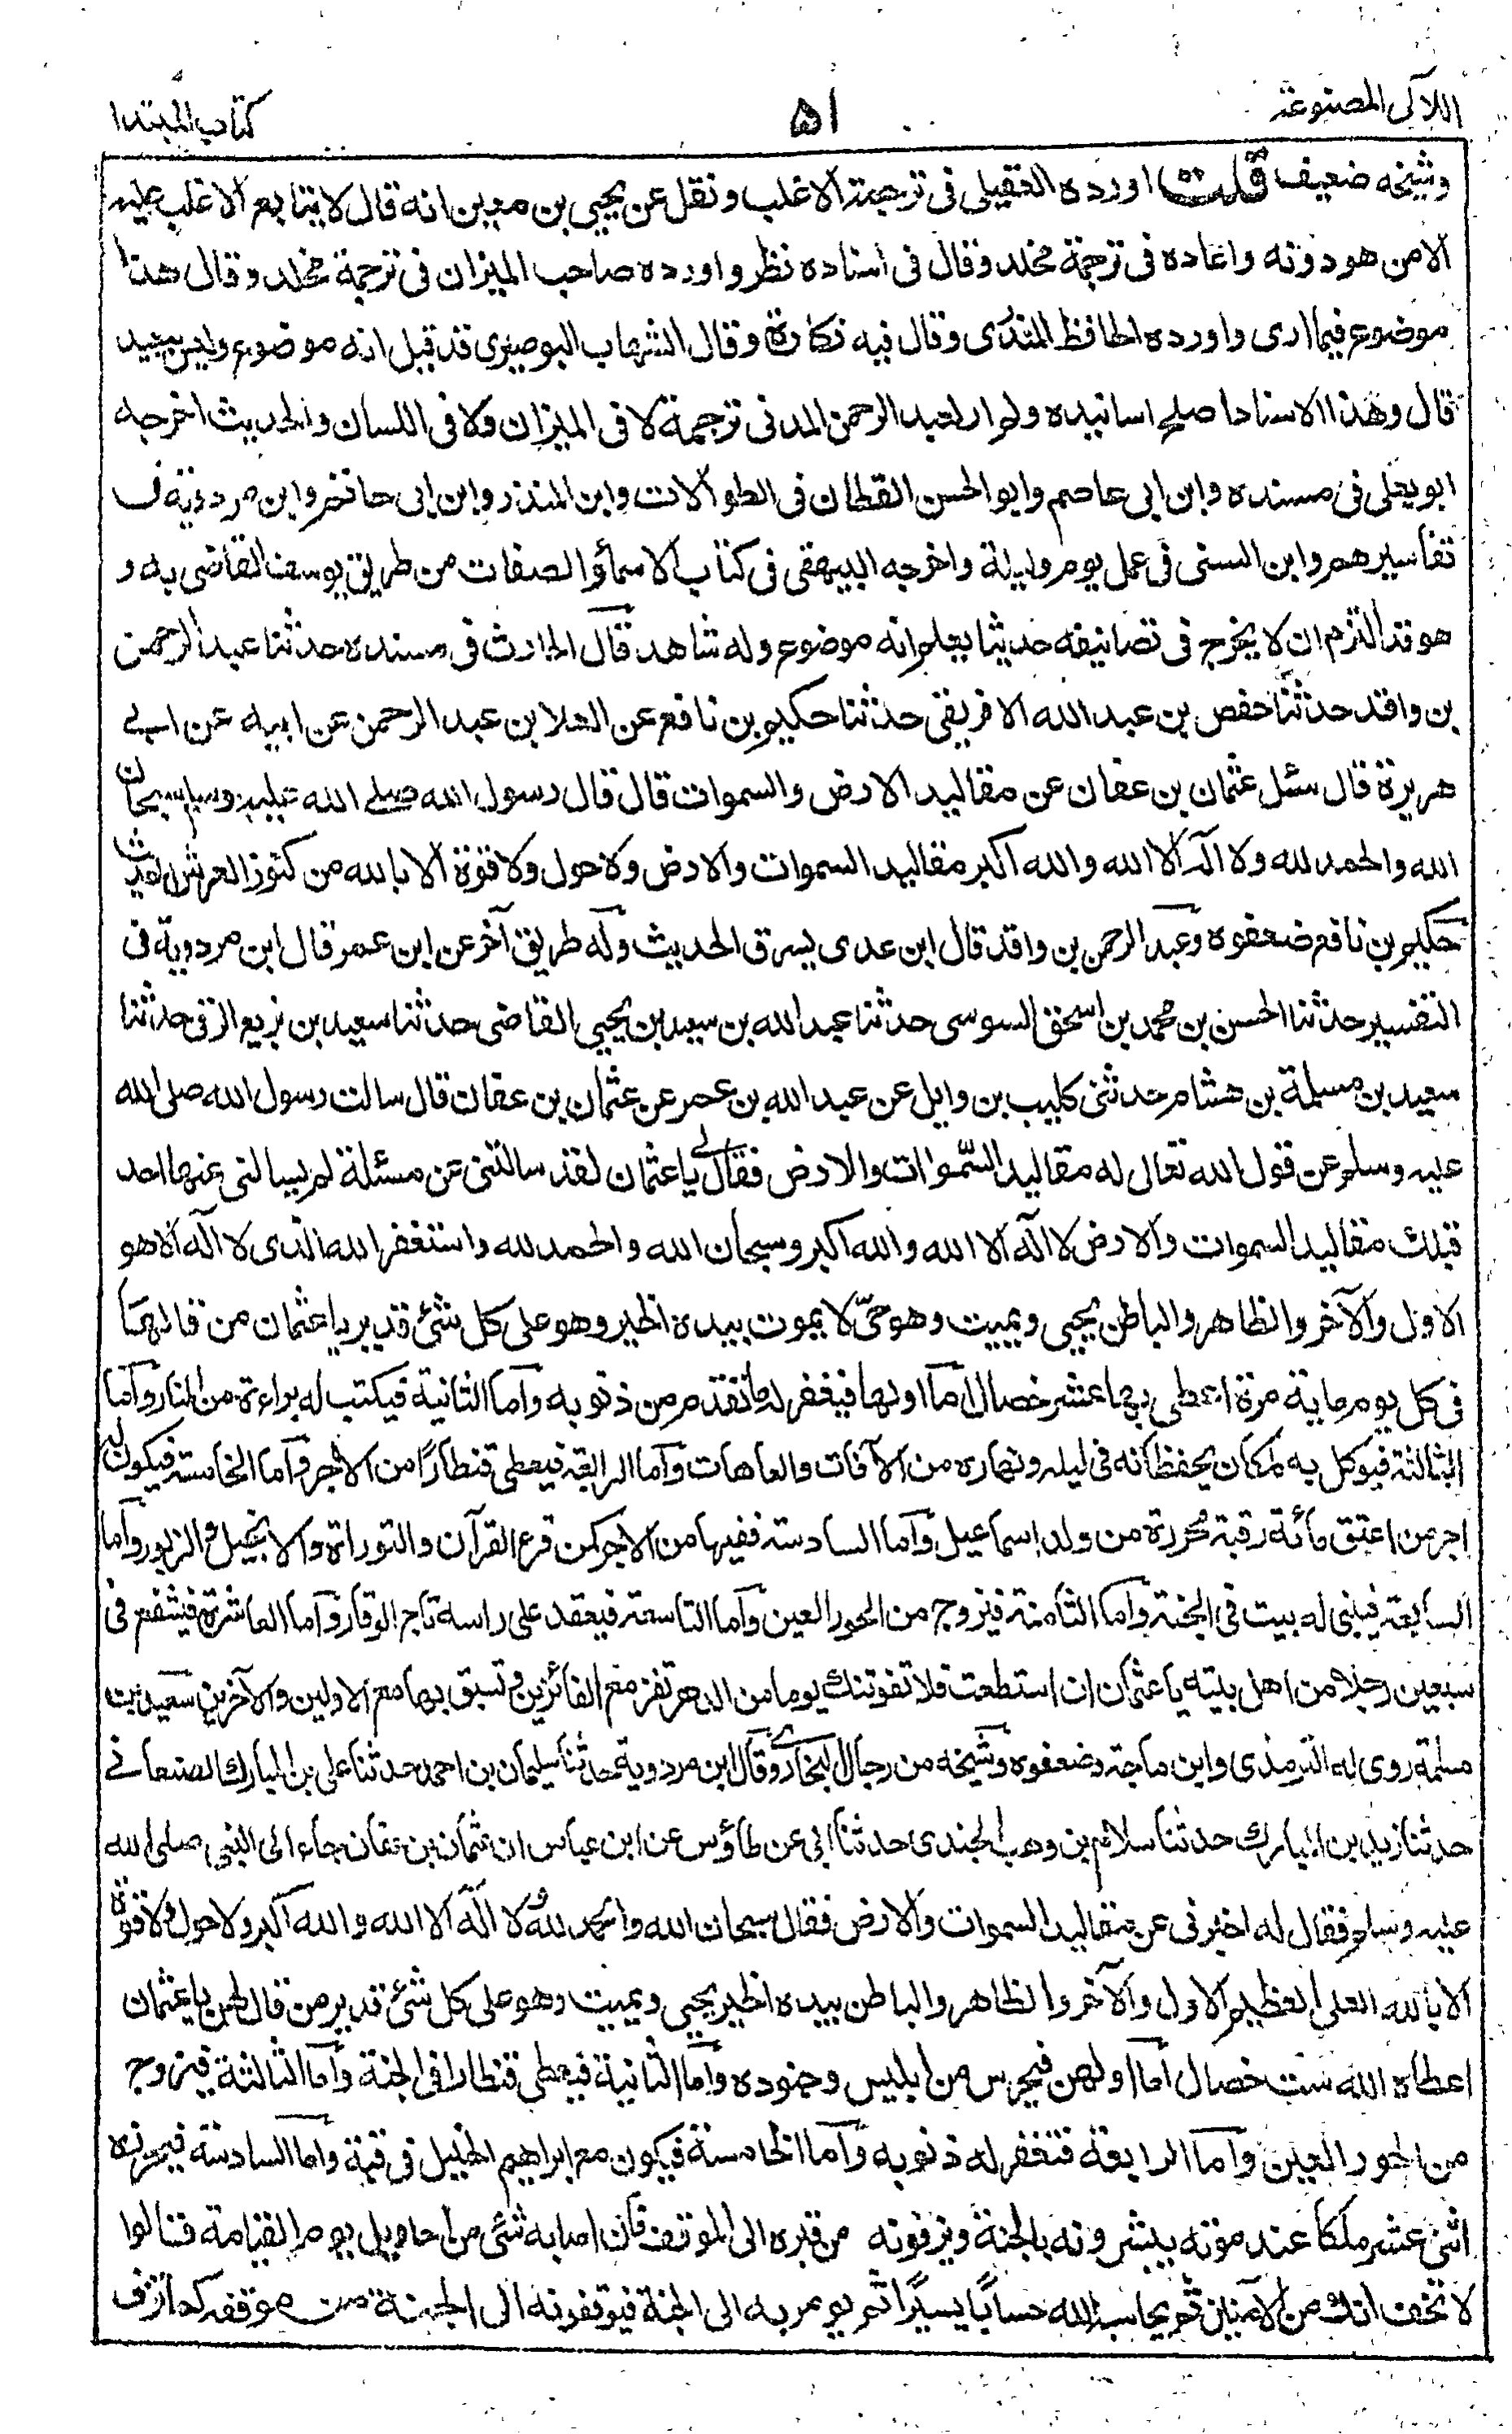 اللآلى المصنوعة
٥١
كتاب المبتدا
وشيخه ضعيف قلت اورده العقيلى فى ترجمة الاغلب ونقل عن يحيى بن معين انه قال لا يتابع الاغلب عليه
الا من هو دونه واعاده فى ترجمة مخلد وقال فى اسناده نظر واورده صاحب الميزان فى ترجمة مخلد وقال هذا
موضوع فيما ارى واورده الحافظ المنذرى وقال فيه نكارة وقال الشهاب البوصيرى قد قيل انه موضوع وليس ببعيد
قال وهذا الاسناد اصلح اسانيده ولم ار لعبد الرحمن المدنى ترجمة لا فى الميزان ولا فى اللسان والحديث اخرجه
ابو يعلى فى مسنده وابن ابى عاصم وابو الحسن القطان فى الطوالات وابن المنذر وابن ابى حاتم وابن مردوية فى
تفاسيرهم وابن السنى فى عمل يوم وليلة واخرجه البيهقى فى كتاب الاسماؤ الصفات من طريق يوسف القاضى به و
هو قد التزم ان لا يخرج فى تصانيفه حديثا يعلم انه موضوع وله شاهد قال الحارث فى مسنده حدثنا عبد الرحمن
بن واقد حدثنا حفص بن عبد الله الافريقى حدثنا حكيم بن نافع عن العلا بن عبد الرحمن عن ابيه عن ابى
هريرة قال سئل عثمان بن عفان عن مقاليد الارض والسموات قال قال رسول الله صلى الله عليه وسلم سبحان
الله والحمد لله ولا آله الا الله والله اكبر مقاليد السموات والارض ولا حول ولا قوة الا بالله من كنوز العرش الحديث
حكيم بن نافع ضعفوه وعبد الرحمن بن واقد قال ابن عدى يسرق الحديث وله طريق آخر عن ابن عمر قال ابن مردوية فى
التفسير حدثنا الحسن بن محمد بن اسحق السوسى حدثنا عبد الله بن سعيد بن يحيى القاضى حدثنا سعيد بن بزيع الرقى حدثنا
سعيد بن مسلمة بن هشام حدثنى كليب بن وايل عن عبد الله بن عمر عن عثمان بن عفان قال سالت رسول الله صلى الله
عليه وسلم عن قول الله تعالى له مقاليد السموات والارض فقال لى يا عثمان لقد سالتنى عن مسئلة لم يسالنى عنها احد
قبلك مقاليد السموات والارض لا آله الا الله والله اكبر وسبحان الله والحمد لله واستغفر الله الذى لا آله الا هو
الاول والآخر والظاهر والباطن يحيى ويميت وهو حىّ لا يموت بيده الخير وهو على كل شئ قدير يا عثمان من قالها
فى كل يوم ماية مرة اعطى بها عشر خصال اما اولها فيغفر له ما تقدم من ذنوبه واما الثانية فيكتب له براءة من النار واما
الثالثة فيوكل به ملكان يحفظانه فى ليله ونهاره من الآفات والعاهات واما الرابعة فيعطى قنطارًا من الاجر واما الخامسة فيكون له
اجر من اعتق مائة رقبة محررة من ولد اسماعيل واما السادسة ففيها من الاجر كمن قرء القرآن والتوراة والانجيل والزبور واما
السابعة فيبنى له بيت فى الجنة واما الثامنة فيزوج من الحور العين واما التاسعة فيعقد على راسه تاج الوقار واما العاشرة فيشفع فى
سبعين رجلا من اهل بيته يا عثمان ان استطعت فلا تفوتنك يوما من الدهر تفز مع الفائزين وتسبق بها مع الاولين والآخرين سعيد بن
مسلمة روى له الترمذى وابن ماجة وضعفوه وشيخه من رجال البخارى وقال ابن مردوية حدثنا سليمان بن احمد حدثنا على بن المبارك الصنعانى
حدثنا زيد بن المبارك حدثنا سلام بن وهب الجندى حدثنا ابى عن طاؤس عن ابن عباس ان عثمان بن عفان جاء الى النبى صلى الله
عليه وسلم فقال له اخبرنى عن مقاليد السموات والارض فقال سبحان الله والحمد لله ولا آله الا الله والله اكبر ولا حول ولا قوة
الا بالله العلى العظيم الاول والآخر والظاهر والباطن بيده الخير يحيى ويميت وهو على كل شئ قدير من قالهن يا عثمان
اعطاه الله ست خصال اما اولهن فيحرس من ابليس وجنوده واما الثانية فيعطى قنطارا فى الجنة واما الثالثة فيزوج
من الحور العين واما الرابعة فتغفر له ذنوبه واما الخامسة فيكون مع ابراهيم الخليل فى قبته واما السادسة فيحضره
اثنى عشر ملكا عند موته يبشرونه بالجنة ويزفونه من قبره الى الموقف فان اصابه شئ من اهاويل يوم القيامة قالوا
لا تخف انك من الآمنين ثم يحاسبه الله حسابًا يسيرًا ثم يومر به الى الجنة فيزفونه الى الجنة من موقفه كما تزف